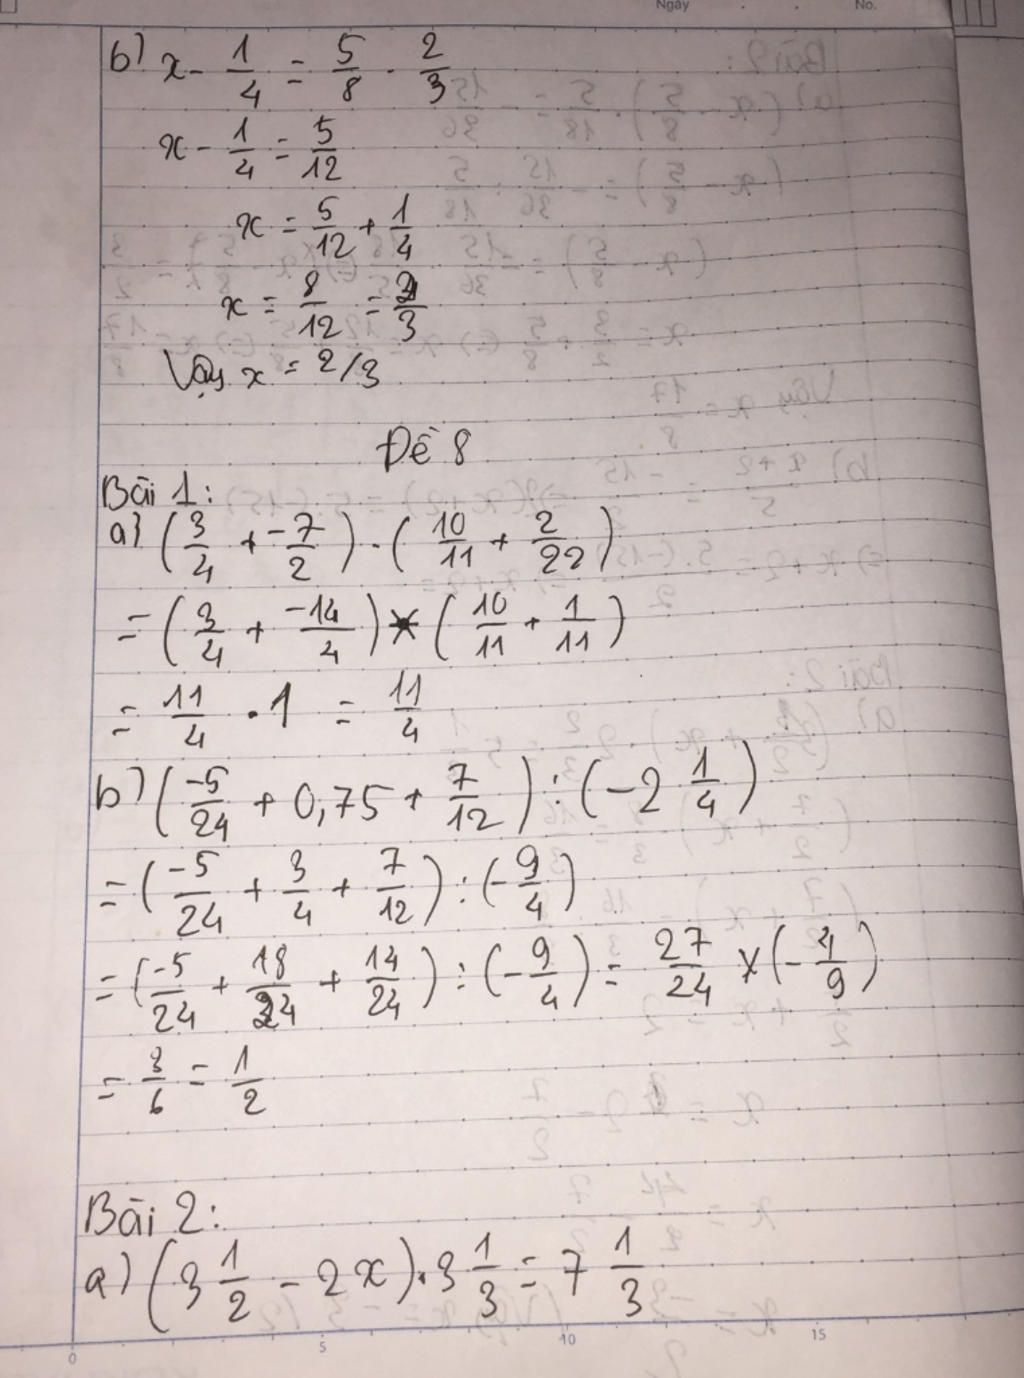 Ngày . . No.
b) x - 1/4 = 5/8 . 2/3
x - 1/4 = 5/12
x = 5/12 + 1/4
x = 8/12 = 2/3
Vậy x = 2/3
Đề 8
Bài 1:
a) (3/4 + -7/2) . (10/11 + 2/22)
= (3/4 + -14/4) * (10/11 + 1/11)
= 11/4 . 1 = 11/4
b) (-5/24 + 0,75 + 7/12) : (-2 1/4)
= (-5/24 + 3/4 + 7/12) : (-9/4)
= (-5/24 + 18/24 + 14/24) : (-9/4) = 27/24 × (-4/9)
= 3/6 = 1/2
Bài 2:
a) (3 1/2 - 2x) . 3 1/3 = 7 1/3
0 5 10 15